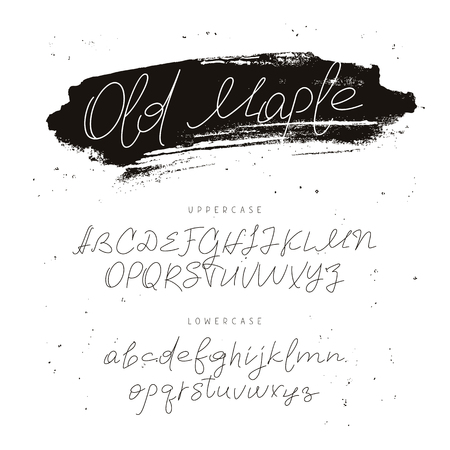 Old Maple
UPPERCASE
ABCDEFGHIJKLMN
OPQRSTUVWXYZ
LOWERCASE
abcdefghijklmn
opqrstuvwxyz